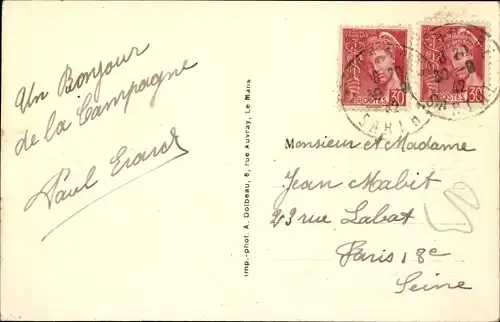 Un Bonjour
de la Campagne
Paul
Imp.-phot. A. Dolbeau, 8, rue Auvray, Le Mans
POSTES 30
POSTES 30
Monsieur et Madame
Jean Mabit
23 rue Labat
Paris 18e
Seine